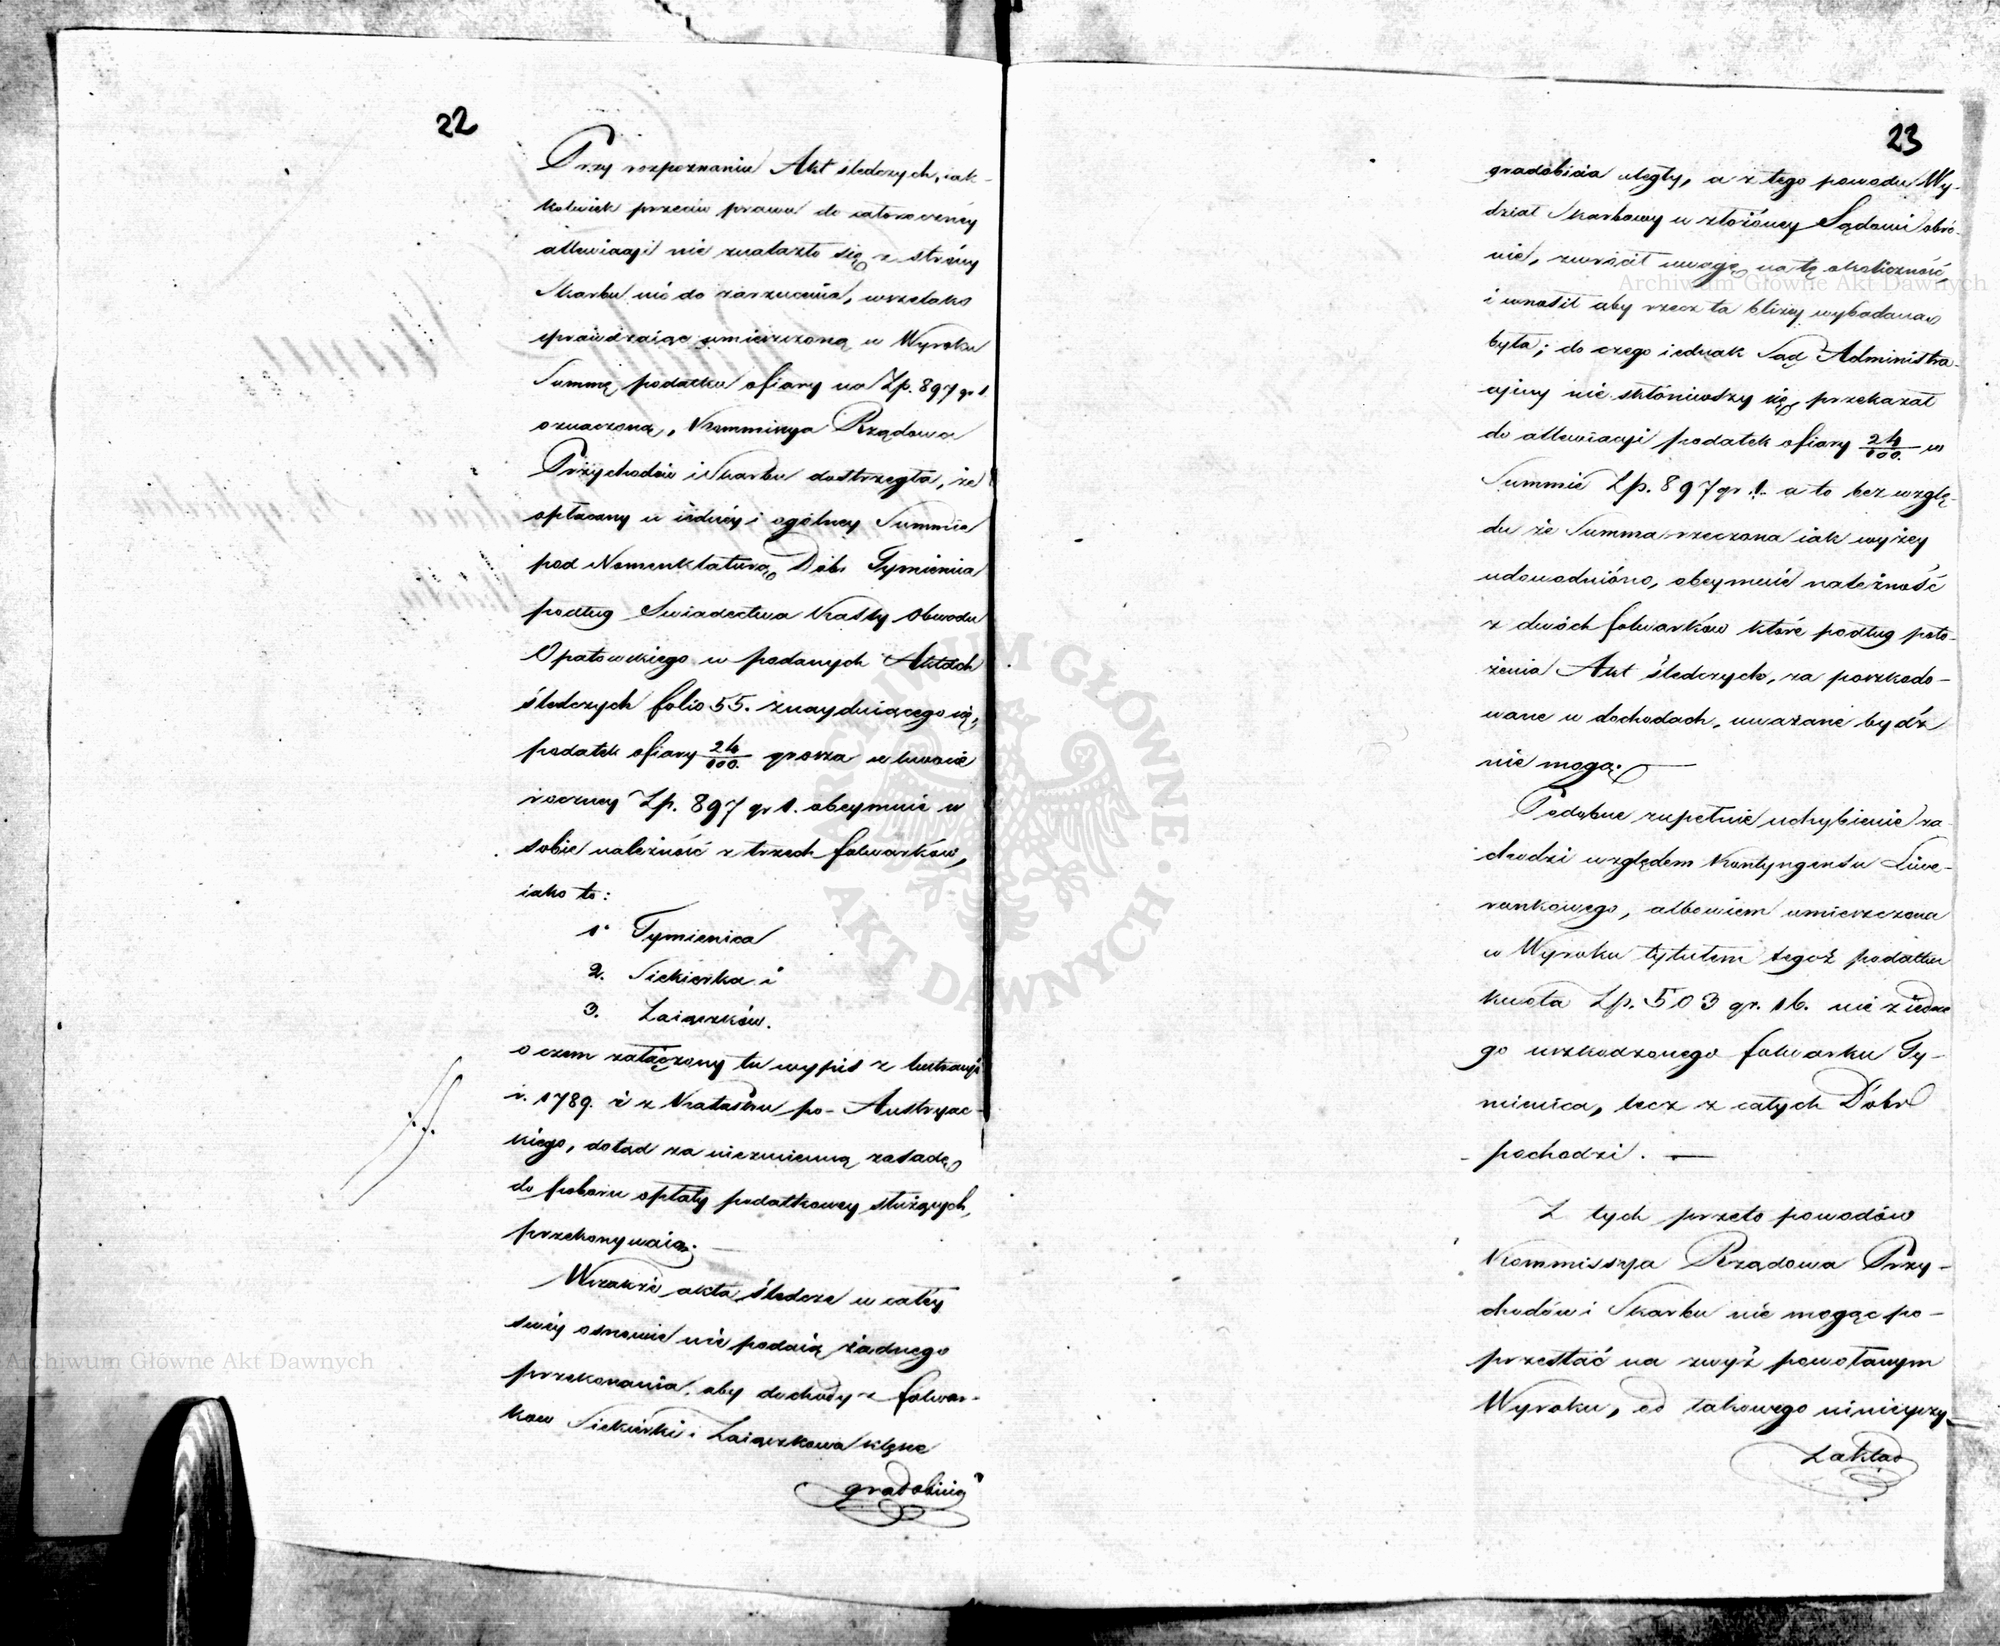 22
Przy rozpoznaniu Akt śledczych, iak-
kolwiek przeciw prawu do całoroczney
allewiacyi nie znalazło się z strony
Skarbu nic do zarzucenia, wszelako
sprawdzaiąc umieszczoną w Wyroku
Summę podatku ofiary na Zp. 897 gr 1.
oznaczoną, Kommissya Rządowa
Przychodów i Skarbu dostrzegła, że
opłacany w iednéy i ogólney Summie
pod Nomenklaturą Dóbr Tymienica
podług Świadectwa Kassy Obwodu
Opatowskiego w podanych Aktach
śledczych folio 55. znayduiącego się,
podatek ofiary 24/100. grosza w kwocie
roczney Zp. 897 gr 1. obeymuie w
sobie należność z trzech folwarków,
iako to:
1° Tymienica
2. Siekierka i
3. Zaiączków.
o czem załączony tu wypis z lustracyi
r. 1789. i z Katastru po-Austryac-
kiego, dotąd za niezmienną zasadę
do poboru opłaty podatkowey służących,
przekonywaią. —
Wszakże akta śledcze w całéy
swéy osnowie nie podaią żadnego
przekonania, aby dochody z folwar-
ków Siekierki i Zaiączkowa klęsce
gradobicia
23
gradobicia uległy, a z tego powodu Wy-
dział Skarbowy w złożoney Sądowi obro-
nie, zwrócił uwagę na tę okoliczność,
i wnosił aby rzecz ta bliżey wybadaną
była; do czego iednak Sąd Administra-
cyiny nie skłoniwszy się, przekazał
do allewiacyi podatek ofiary 24/100. w
Summie Zp. 897 gr. 1. a to bez wzglę-
du że Summa rzeczona iak wyżey
udowodniono, obeymuie należność
z dwóch folwarków które podług poło-
żenia Akt śledczych, za poszkodo-
wane w dochodach, uważane bydź
nie mogą. —
Podobne zupełnie uchybienie za-
chodzi względem Kontyngensu Liwe-
runkowego, albowiem umieszczona
w Wyroku tytułem tegoż podatku
kwota Zp. 503 gr. 16. nie z iedne
go uszkodzonego folwarku Ty-
mienica, lecz z całych Dóbr
pochodzi. —
Z tych przeto powodów
Kommissya Rządowa Przy-
chodów i Skarbu nie mogąc po-
przestać na zwyż powołanym
Wyroku, od takowego ninieyszy
Zakład
Archiwum Główne Akt Dawnych
Archiwum Główne Akt Dawnych
ARCHIWUM GŁÓWNE · AKT DAWNYCH ·